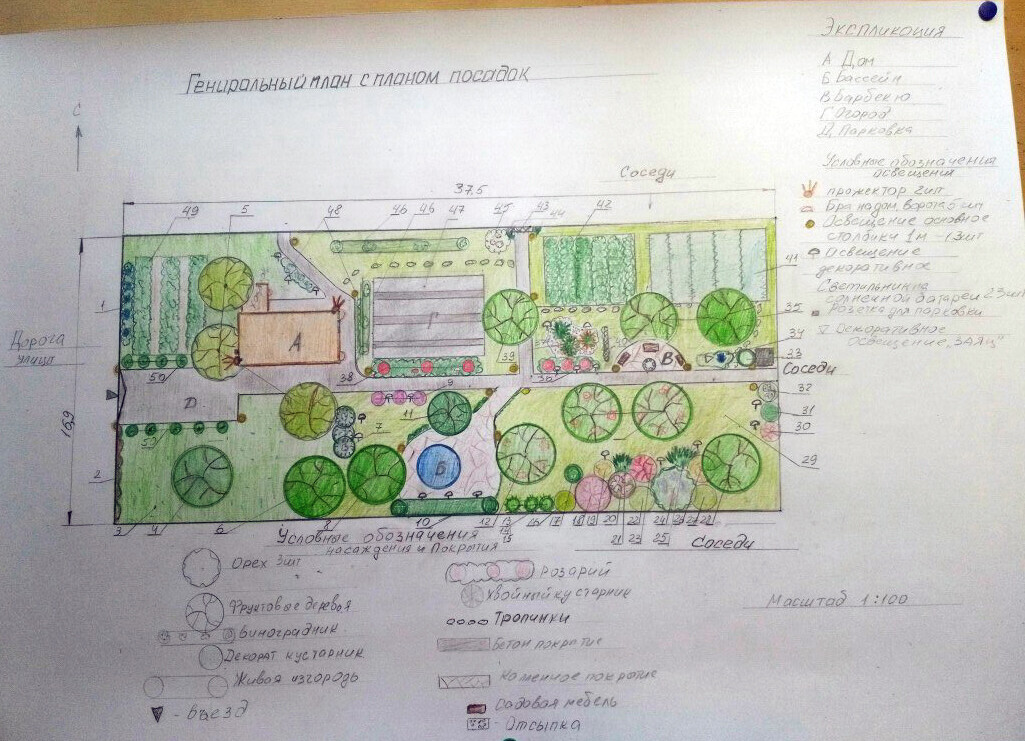 Гениральный план с планом посадок
Экспликация
А Дом
Б Бассейн
В Барбекю
Г Огород
Д Парковка
Условные обозначения
освещения
прожектор 2шт
Бра над ворота 5 шт
Освещение основное
столбики 1м - 13шт
Освещение
декоративное
Светильник на
солнечной батареи 23шт
Розетка для парковки
Декоративное
освещение "ЗАЯЦ"
С
Соседи
37.5
49 5 48 46 46 47 45 43 44 42
1 41
Дорога
улица
35
34
33
Соседи
А Г В
50 38 9 39 36
32
Д 11 7
31
30
53
16,9
Б
29
2
3 4 6 8 10 12 13 14 15 16 17 18 19 20 21 22 23 24 25 26 27 28
Соседи
Условные обозначения
насаждения и покрытия
Орех 3шт
Фруктовые деревья
Виноградник
Декорат кустарник
Живая изгородь
- Въезд
Розарий
Хвойный кустарник
Тропинки
Бетон покрытие
Каменное покрытие
Садовая мебель
- Отсыпка
Масштаб 1:100